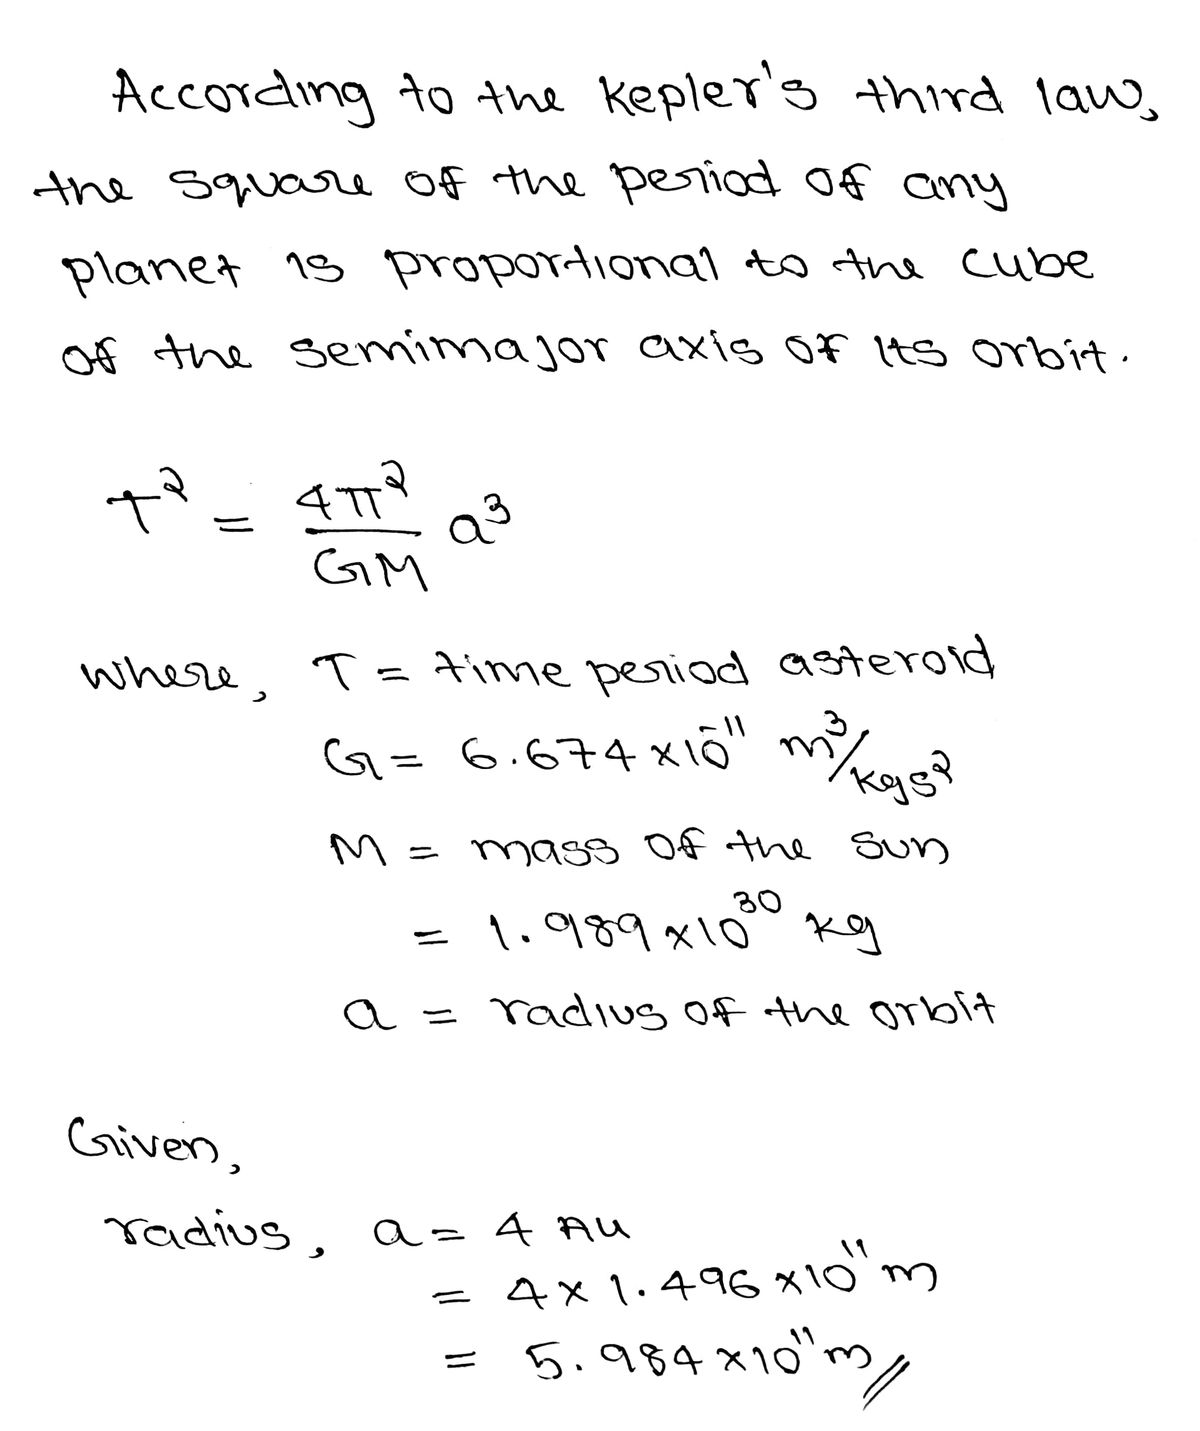 According to the kepler's third law,
the square of the period of any
planet is proportional to the cube
of the semimajor axis of its orbit.
T² = 4π²/GM a³
where, T = time period asteroid
G = 6.674 × 10⁻¹¹ m³/kgs²
M = mass of the sun
= 1.989 × 10³⁰ kg
a = radius of the orbit
Given,
radius, a = 4 AU
= 4 × 1.496 × 10¹¹ m
= 5.984 × 10¹¹ m //